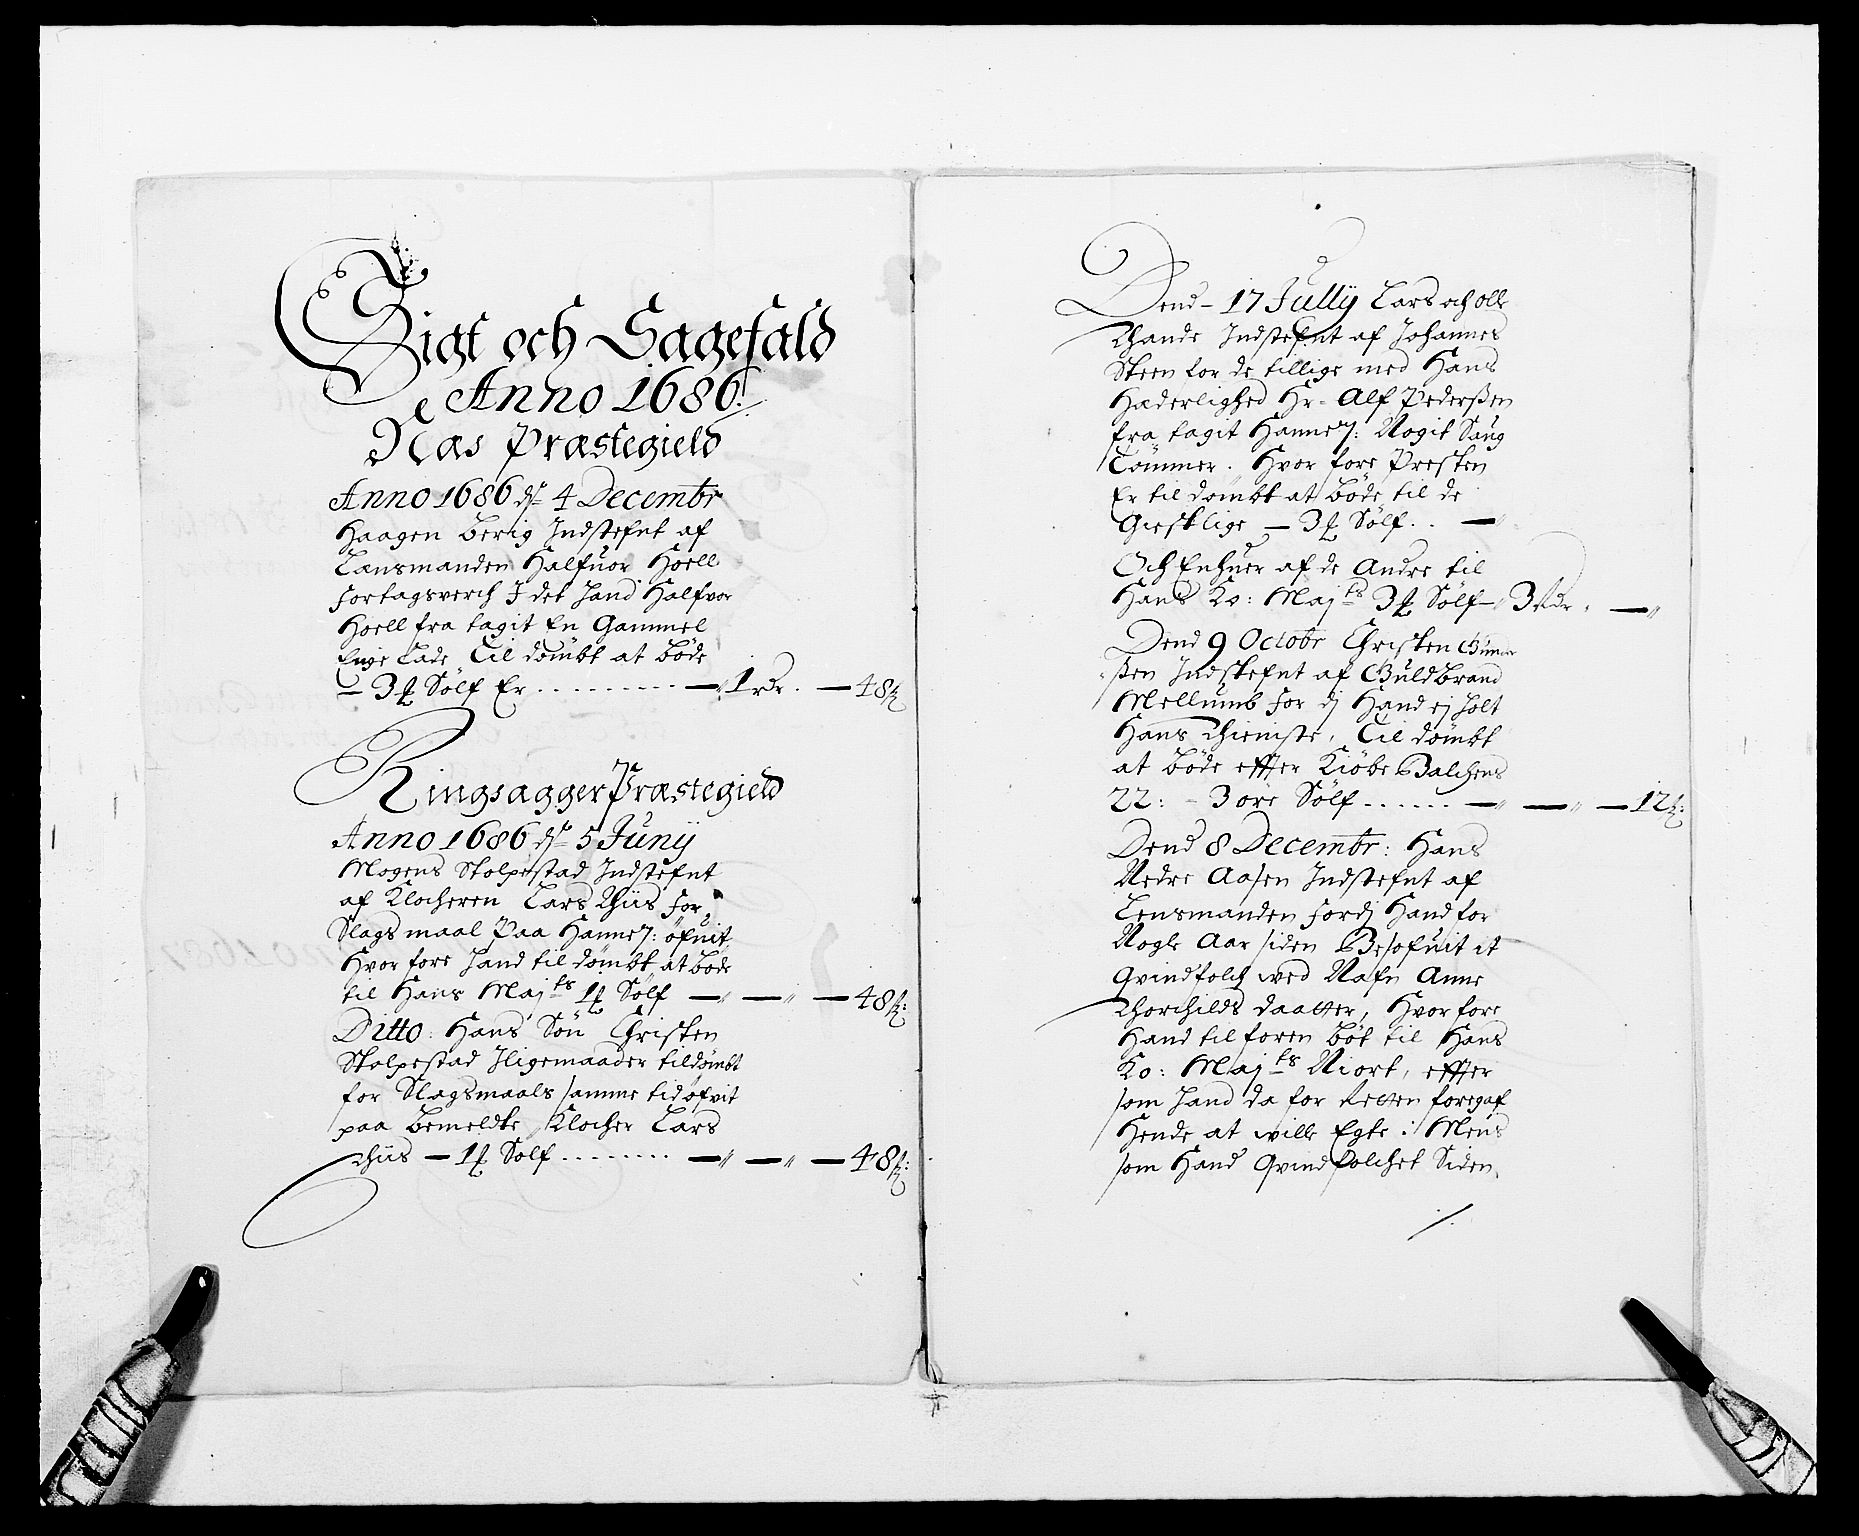 Sigt och Sagefald
Anno 1686
Næs Præstegield
Anno 1686 d. 4 Decembr
Haagen Berig Indstefnt af
Lænsmanden Halfuor Hoell
Fortagsverch I det hand Halfvor
Hoell fra tagit En Gammel
Enge Lade, Til dömbt at böde
- 3 Sølf Er . . . . . . . . . — 1 rdr. — 48
Ringsagger Præstegield
Anno 1686 d. 5 Junij
Mogens Stolpestad Indstefnt
af Klocheren Lars Thiis For
Slags maal Paa Hannem: öfuit,
Hvor fore hand til dömbt at böde
til Hans Maj:ts 1 Sölf — — — 48
Ditto: Hans Sön Christen
Stolpestad Iligemaader tildömbt
for Slagsmaals samme tid öfvit
paa bemeldte Klocher Lars
Thiis — 1 Sølf . . . . . . . . — — — 48
Dend - 17 Jullij Lars och olle
Thande Indstefnt af Johannes
Steen for de tillige med Hans
Hæderlighed Hr. Alf Pederßen
fra tagit Hannem: Nogit Saug
Tömmer. Hvor fore Presten
Er til dömbt at böde til de
Giestlige — 3 Sølf . . —
Och Enhuer af de Andre til
Hans Ko: Maj:ts 3 Sølf - 3 Rdr. —
Dend 9 Octobr Christen
ßen Indstefnt af Guldbrand
Mellumb For dj Hand ej holt
Hans Thieniste, Til dömbt
at böde effter Kiöbe Balchens
22: - 3 öre Sölf . . . . . . — — — 12
Dend 8 Decembr: Hans
Nedre Aasen Indstefnt af
Lensmanden Fordj Hand for
Nogle Aar siden Besofuit it
Qvindfolch wed Nafn Anne
Thorchilds daatter, Hvor fore
Hand til foren böt til Hans
Ko: Maj:ts Niort, effter
som hand da for Retten foregaf
Hende at wille Egte: Mens
som Hand Qvindfolchet Siden